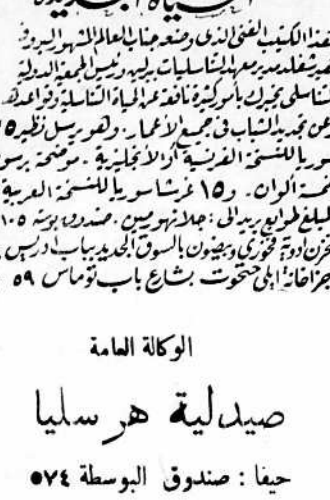 الحياة الجديدة
هذا الكتيب الفني الذي وضعه جناب العالم المشهور البروف
هيرشفلد مدير معهد التناسليات ببرلين ورئيس الجمعية الدولية
التناسلي يخبرك بأمور كثيرة نافعة عن الحياة التناسلية وقواعدها
عن تجديد الشباب في جميع الأعمار . وهو يرسل نظير ١٥
سوريا للنسخة الفرنسية أو الأنجليزية . موضحة برسو
خمسة ألوان . و ١٥ غرشا سوريا للنسخة العربية
المبلغ طوابع بريد الى : جلانهورمين . صندوق بوسته ١٠٥
مخزن ادوية فخوري وبيضون بالسوق الجديد بباب ادريس
اجزاخانة ايلي حتحوت بشارع باب توماس ٥٩
الوكالة العامة
صيدلية هرسليا
حيفا : صندوق البوسطة ٥٧٤